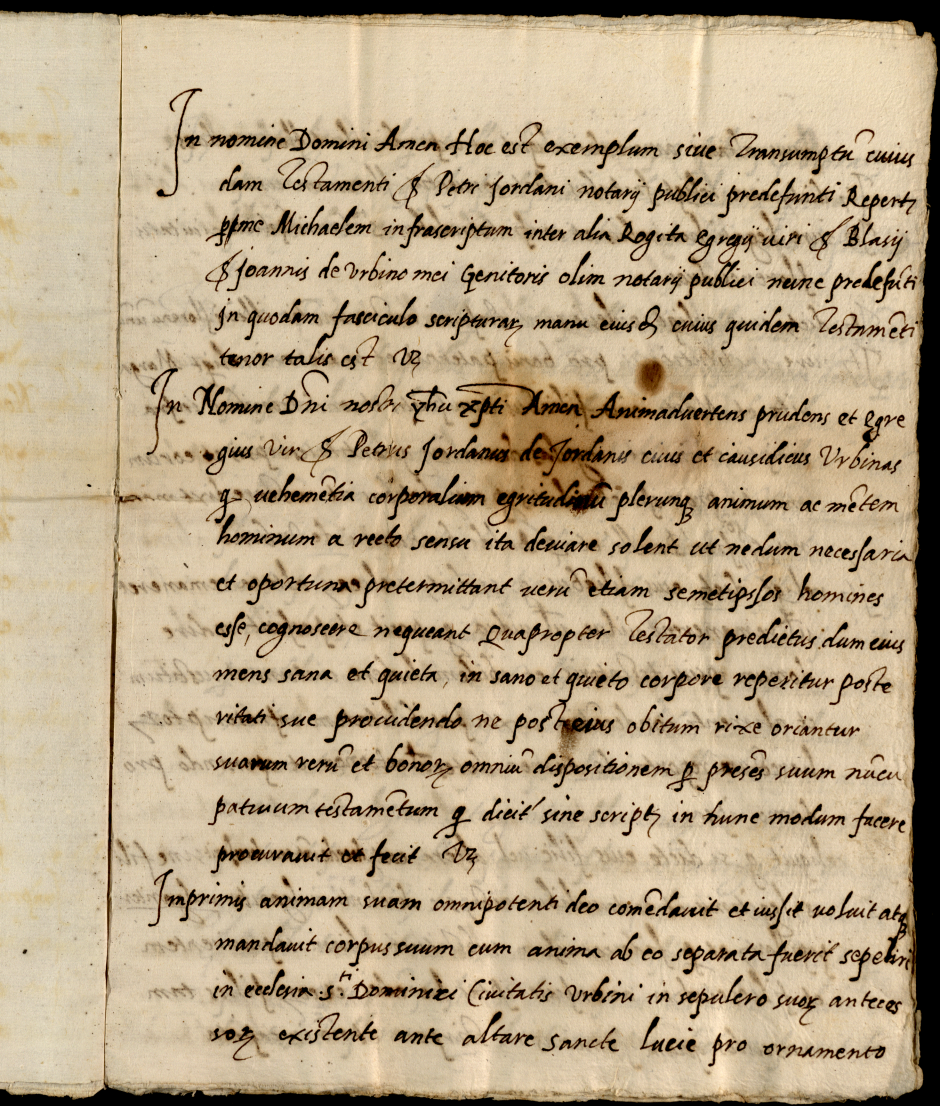 In nomine Domini Amen Hoc est exemplum sive Transumptū cuius
dam Testamenti S Petri Jordani notarij publici predefunti Repertȝ
ꝑ me Michaelem infrascriptum inter alia Rogita egregij viri S Blasij
S Joannis de Urbino mei Genitoris olim notarij publici nunc predefūti
in quodam fasciculo scripturaꝝ manu eiusd cuius quidem Testamēti
tenor talis est Vȝ
In Nomine Dn̄i nostri yhū xpti Amen Animadvertens prudens et egre
gius vir S Petrus Jordanus de Jordanis civis et causidicus Urbinas
ꝙ vehemētia corporalium egritudinū plerunqȝ animum ac mētem
hominum a recto sensu ita deviare solent ut nedum necessaria
et oportuna pretermittant verū etiam semetipssos homines
esse, cognoscere nequeant Quapropter Testator predictus dum eius
mens sana et quieta, in sano et quieto corpore reperitur poste
ritati sue procudendo ne post eius obitum rixe oriantur
suarum rerū et bonoꝝ omniū dispositionem ꝑ presēs suum nūcu
pativum testamētum ꝙ dicit' sine scriptȝ in hunc modum facere
procuravit et fecit Vȝ
Imprimis animam suam omnipotenti deo comēdavit et iussit voluit atqȝ
mandavit corpus suum cum anima ab eo separata fuerit sepeliri
in ecclesia s.ti Dominici Civitatis Urbini in sepulcro suoꝝ anteces
soꝝ existente ante altare sancte lucie pro ornamento